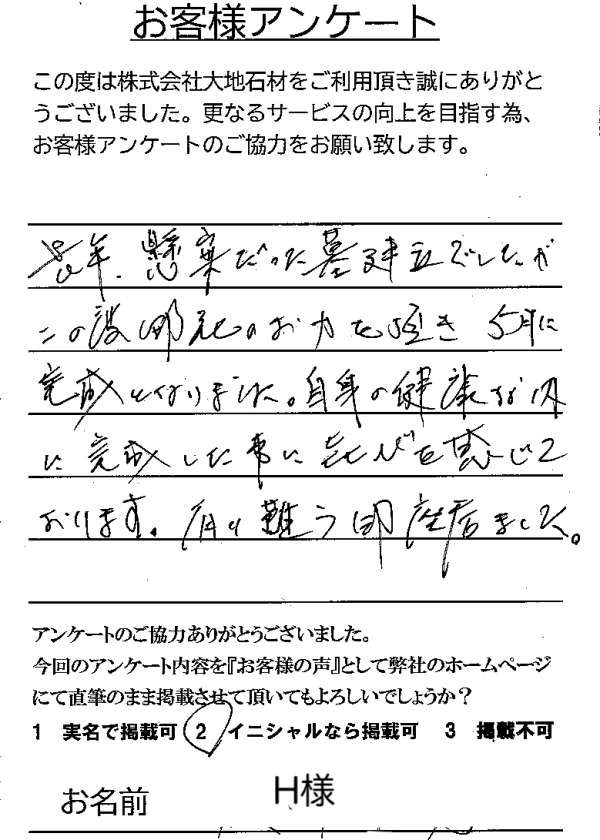 お客様アンケート
この度は株式会社大地石材をご利用頂き誠にありがと
うございました。更なるサービスの向上を目指す為、
お客様アンケートのご協力をお願い致します。
長年、懸案だった墓建立でしたが
この度御社のお力を頂き 5月に
完成となりました。自身の健康な内
に完成した事に喜びを感じて
おります。有り難う御座居ました。
アンケートのご協力ありがとうございました。
今回のアンケート内容を『お客様の声』として弊社のホームページ
にて直筆のまま掲載させて頂いてもよろしいでしょうか？
1 実名で掲載可 2 イニシャルなら掲載可 3 掲載不可
お名前 H様